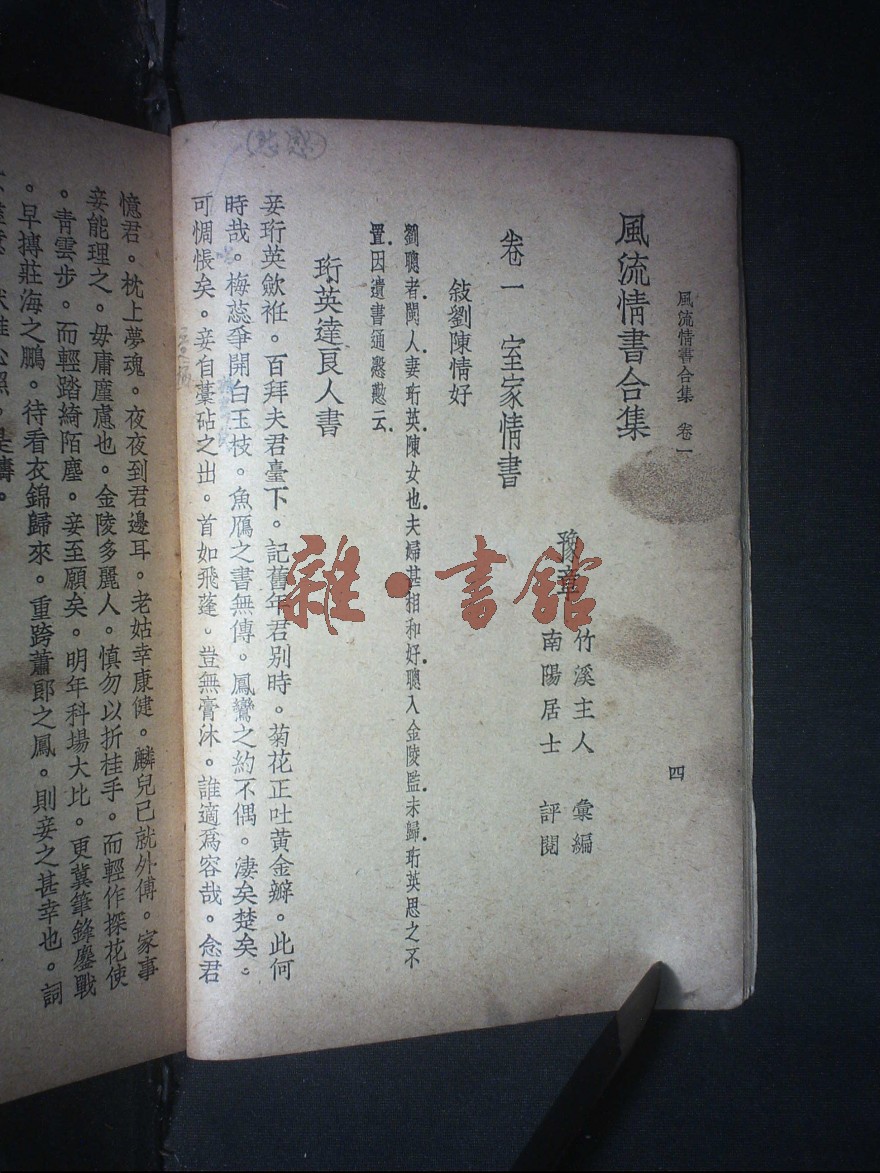 風流情書合集　卷一
四
風流情書合集
豫章　竹溪主人　彙編
南陽居士　評閱
卷一　室家情書
敍劉陳情好
劉聰者閩人妻珩英陳女也夫婦甚相和好聰入金陵監未歸珩英思之不
置因遺書通慇懃云
珩英達良人書
妾珩英歛袵。百拜夫君臺下。記舊年君別時。菊花正吐黃金瓣。此何
時哉。梅蕊爭開白玉枝。魚鴈之書無傳。鳳鸞之約不偶。淒矣楚矣。
可惆悵矣。妾自藁砧之出。首如飛蓬。豈無膏沐。誰適爲容哉。念君
憶君。枕上夢魂。夜夜到君邊耳。老姑幸康健。麟兒已就外傅。家事
妾能理之。毋庸廑慮也。金陵多麗人。愼勿以折桂手。而輕作探花使
。青雲步。而輕踏綺陌塵。妾至願矣。明年科場大比。更冀筆鋒鏖戰
。早摶莊海之鵬。待看衣錦歸來。重跨蕭郎之鳳。則妾之甚幸也。詞
雜·書館